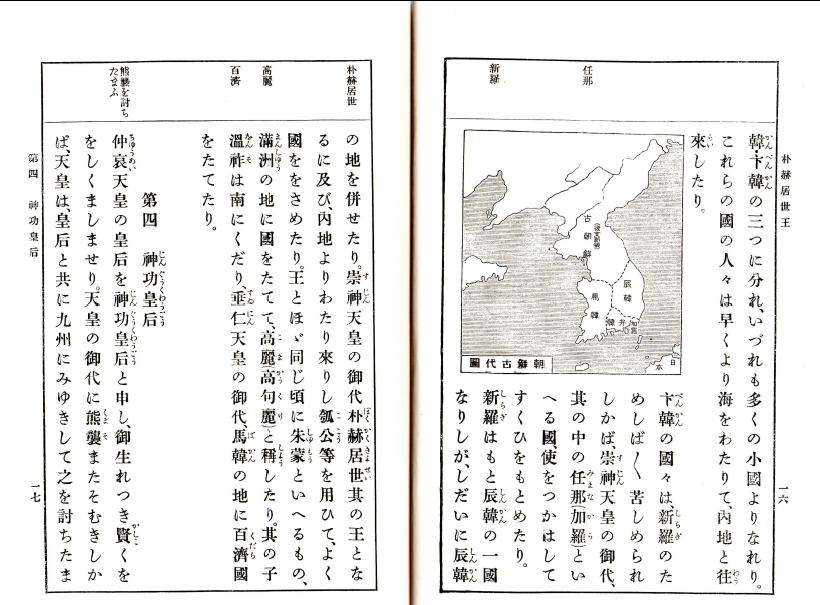 朴赫居世王
一六
任那
新羅
韓・卞韓の三つに分れ、いづれも多くの小國よりなれり。
これらの國の人々は早くより海をわたりて、內地と往
來したり。
古朝鮮
辰韓
馬韓
弁韓
日本
朝鮮古代圖
卞韓の國々は新羅のた
めしば〱苦しめられ
しかば、崇神天皇の御代、
其の中の任那(加羅)とい
へる國、使をつかはして
すくひをもとめたり。
新羅はもと辰韓の一國
なりしが、しだいに辰韓
朴赫居世
高麗
百濟
熊襲を討ち
たまふ
の地を併せたり。崇神天皇の御代朴赫居世其の王とな
るに及び、內地よりわたり來りし瓠公等を用ひて、よく
國ををさめたり。王とほゞ同じ頃に朱蒙といへるもの、
滿洲の地に國をたてて、高麗(高句麗)と稱したり。其の子
溫祚は南にくだり、垂仁天皇の御代、馬韓の地に百濟國
をたてたり。
第四 神功皇后
仲哀天皇の皇后を神功皇后と申し、御生れつき賢くを
をしくましませり。天皇の御代に熊襲またそむきしか
ば、天皇は、皇后と共に九州にみゆきして之を討ちたま
第四 神功皇后
一七